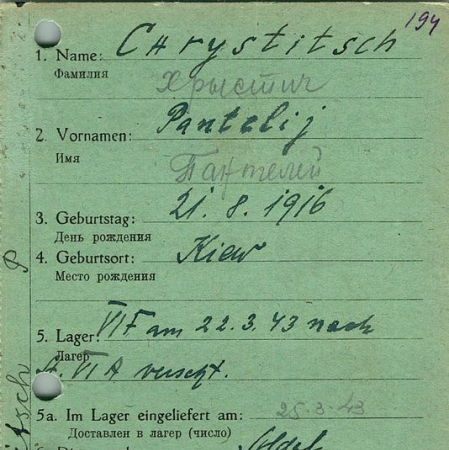 194
1. Name: Chrystitsch
Фамилия
Хрыстич
2. Vornamen: Pantelij
Имя
Пантелей
3. Geburtstag: 21. 8. 1916
День рождения
4. Geburtsort: Kiew
Место рождения
5. Lager: VI F am 22. 3. 43 nach
Лагерь
St. VI A versetzt.
5a. Im Lager eingeliefert am: 25-3-43
Доставлен в лагерь (число)